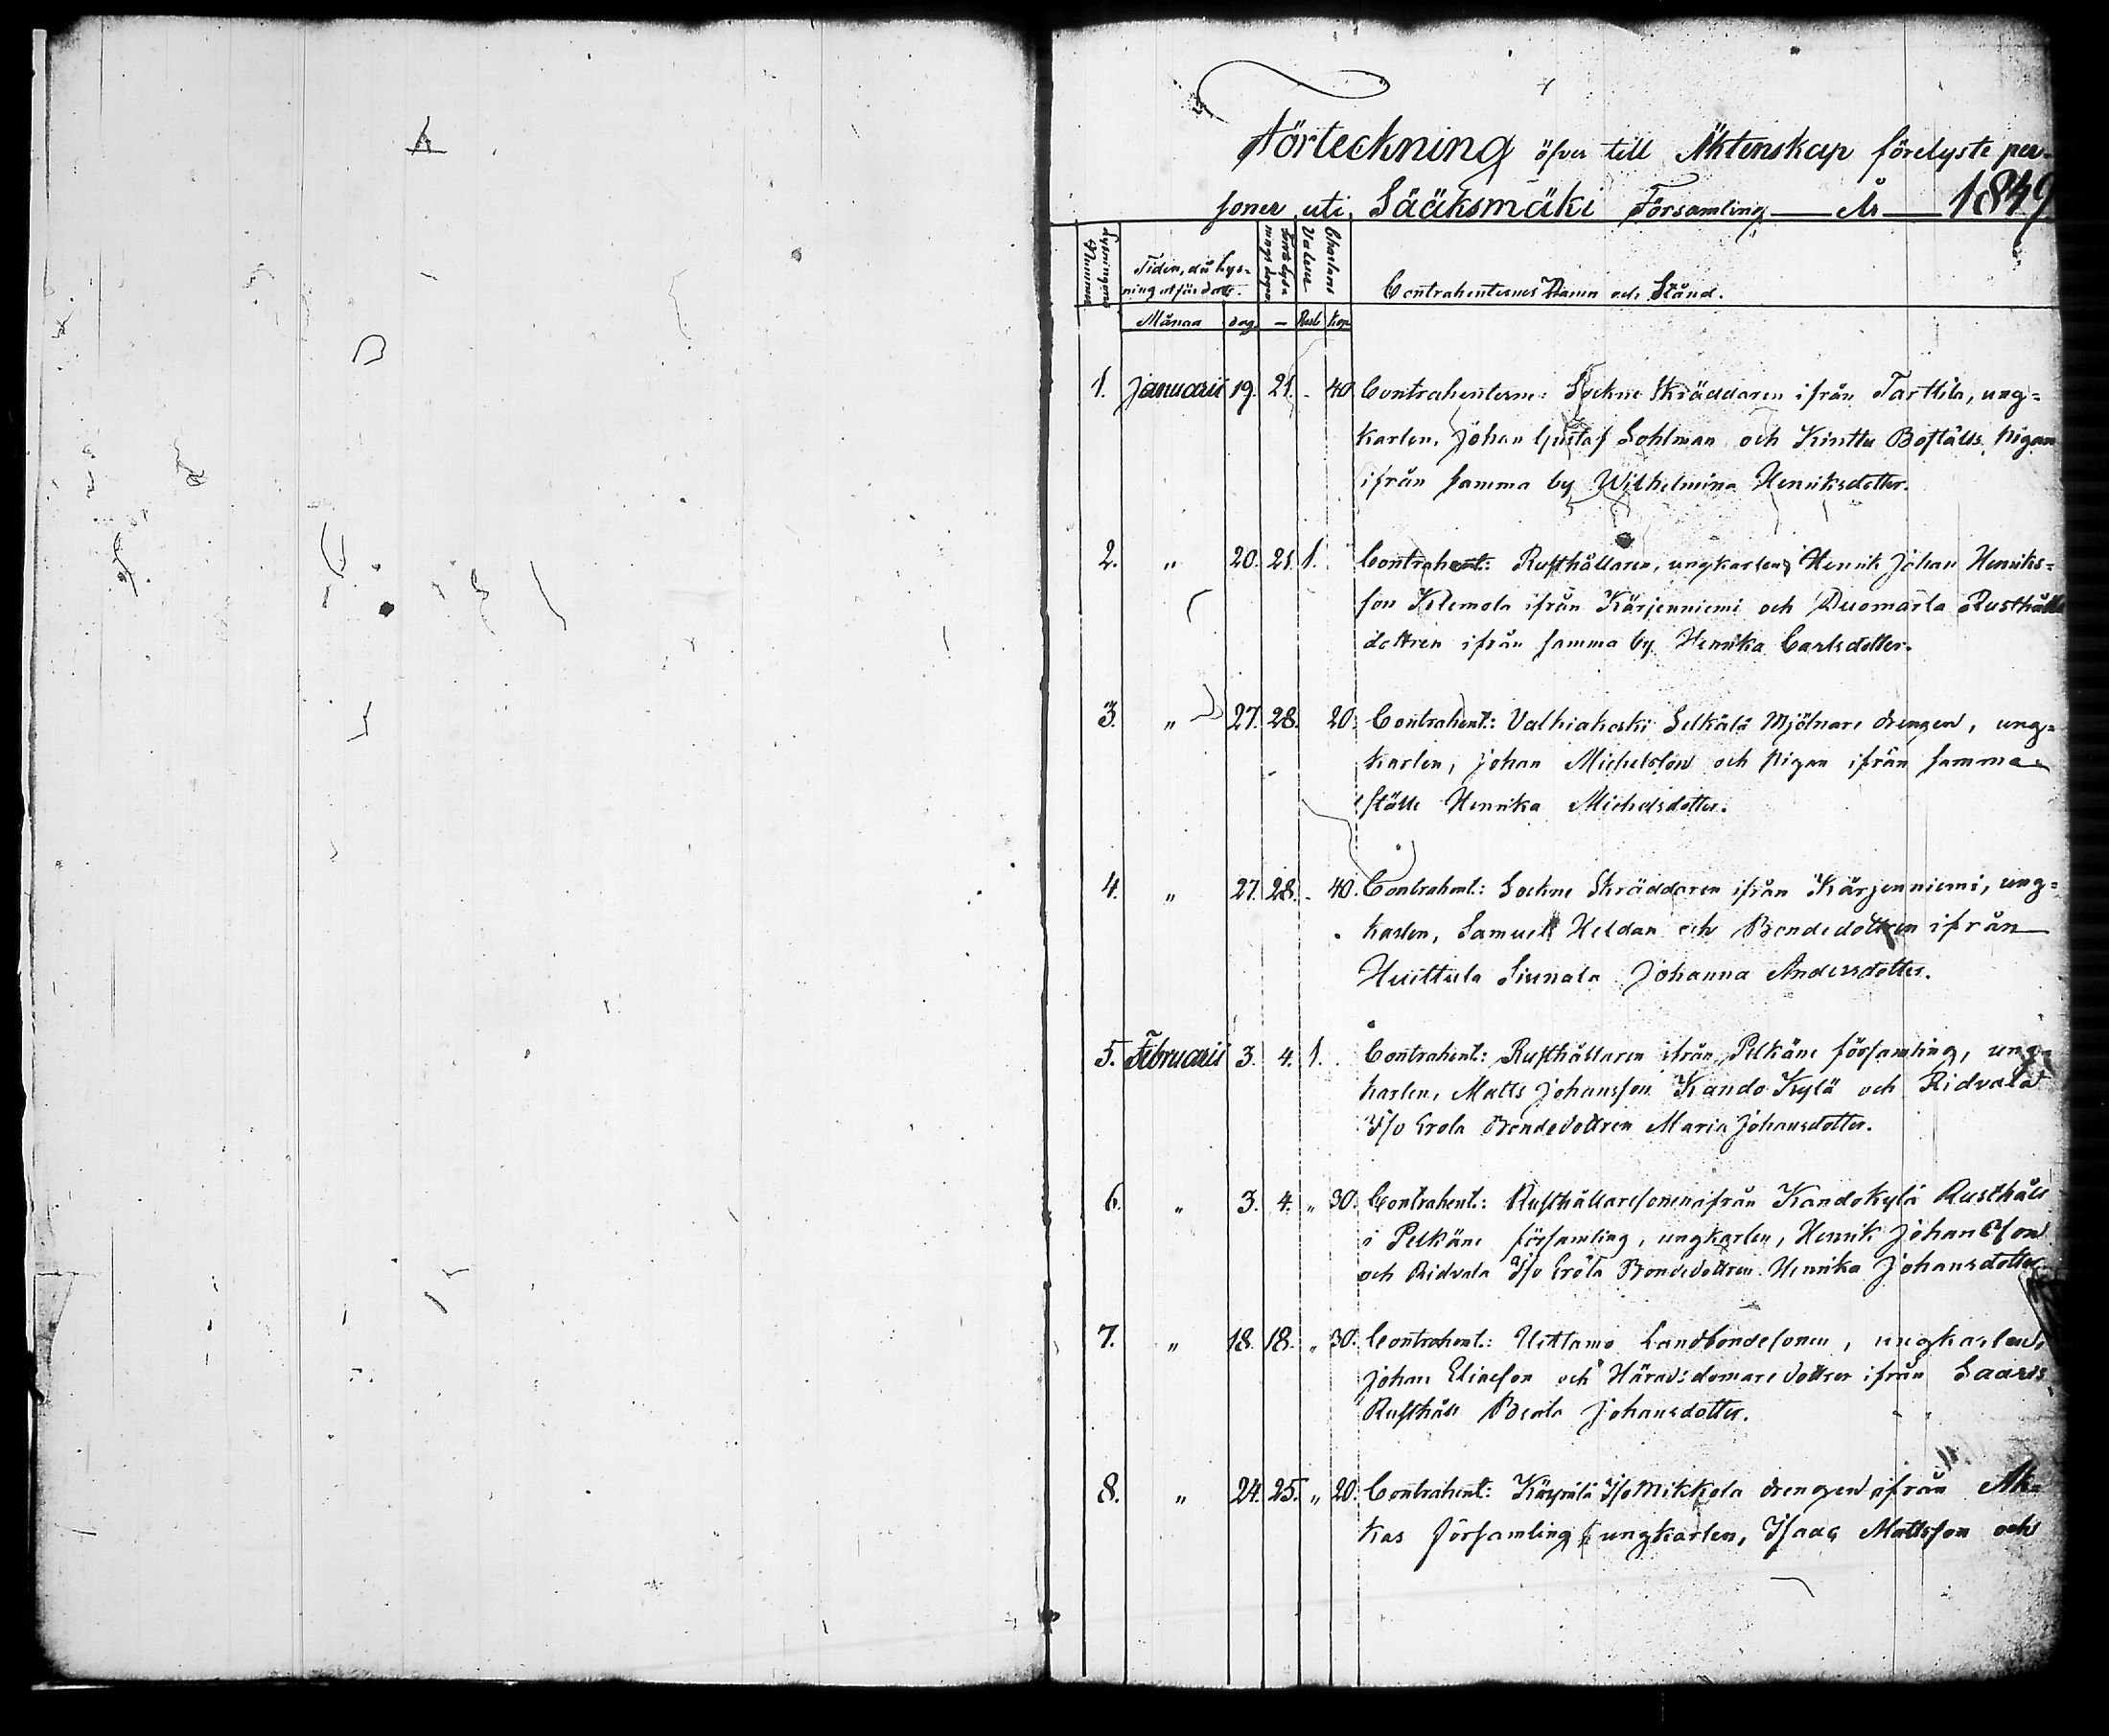 Förteckning öfver till Äktenskap förelyste per-
soner uti Sääksmäki Församling — År — 1849
Lysningens Nummer
Tiden, då lys-
ning utfärdats.
Första lysnings dagen
Charlans Valeur
Contrahenternes Namn och Stånd.
Månad dag. — Rub Kop
1. Januarii 19. 21. - 40 Contrahenterne: Sockne Skräddaren ifrån Tarttila, ung=
karlen, Johan Gustaf Lohlman och Kinttu Boställs pigan
ifrån samma by Wilhelmina Henriksdotter.
2. " 20. 21. 1. Contrahent: Rusthållaren, ungkarlen, Henrik Johan Henriks=
son Klemola ifrån Kärjenniemi och Duomarla Rusthålls
dottren ifrån samma by Henrika Carlsdotter.
3. " 27. 28. 20. Contrahent: Valkiakoski Selkälä Mjölnare drengen, ung=
karlen, Johan Michelsson och pigan ifrån samma
ställe Henrika Michelsdotter.
4. " 27. 28. - 40. Contrahent: Sockne Skräddaren ifrån Kärjenniemi, ung=
karlen, Samuel Heldan och Bondedottren ifrån
Huittula Siunala Johanna Andersdotter.
5. Februarii 3. 4. 1. Contrahent: Rusthållaren ifrån Pelkäne församling, ung=
karlen, Matts Johansson Kando Kylä och Ridvala
I/o Erola Bondedottren Maria Johansdotter.
6. " 3. 4. " 30. Contrahent: Rusthållaresonen ifrån Kandokylä Rusthåll
i Pelkäne församling, ungkarlen, Henrik Johansson
och Ridvala I/o Erola Bondedottren Henrika Johansdotter.
7. " 18. 18. " 30. Contrahent: Uittamo Landbondesonen, ungkarlen,
Johan Eliasson och Häradsdomare dottren ifrån Saaris
Rusthåll Beata Johansdotter.
8. " 24. 25. " 20. Contrahent: Käypilä I/o Mikkola drengen ifrån Ak=
kas församling, ungkarlen, Isaac Mattsson och